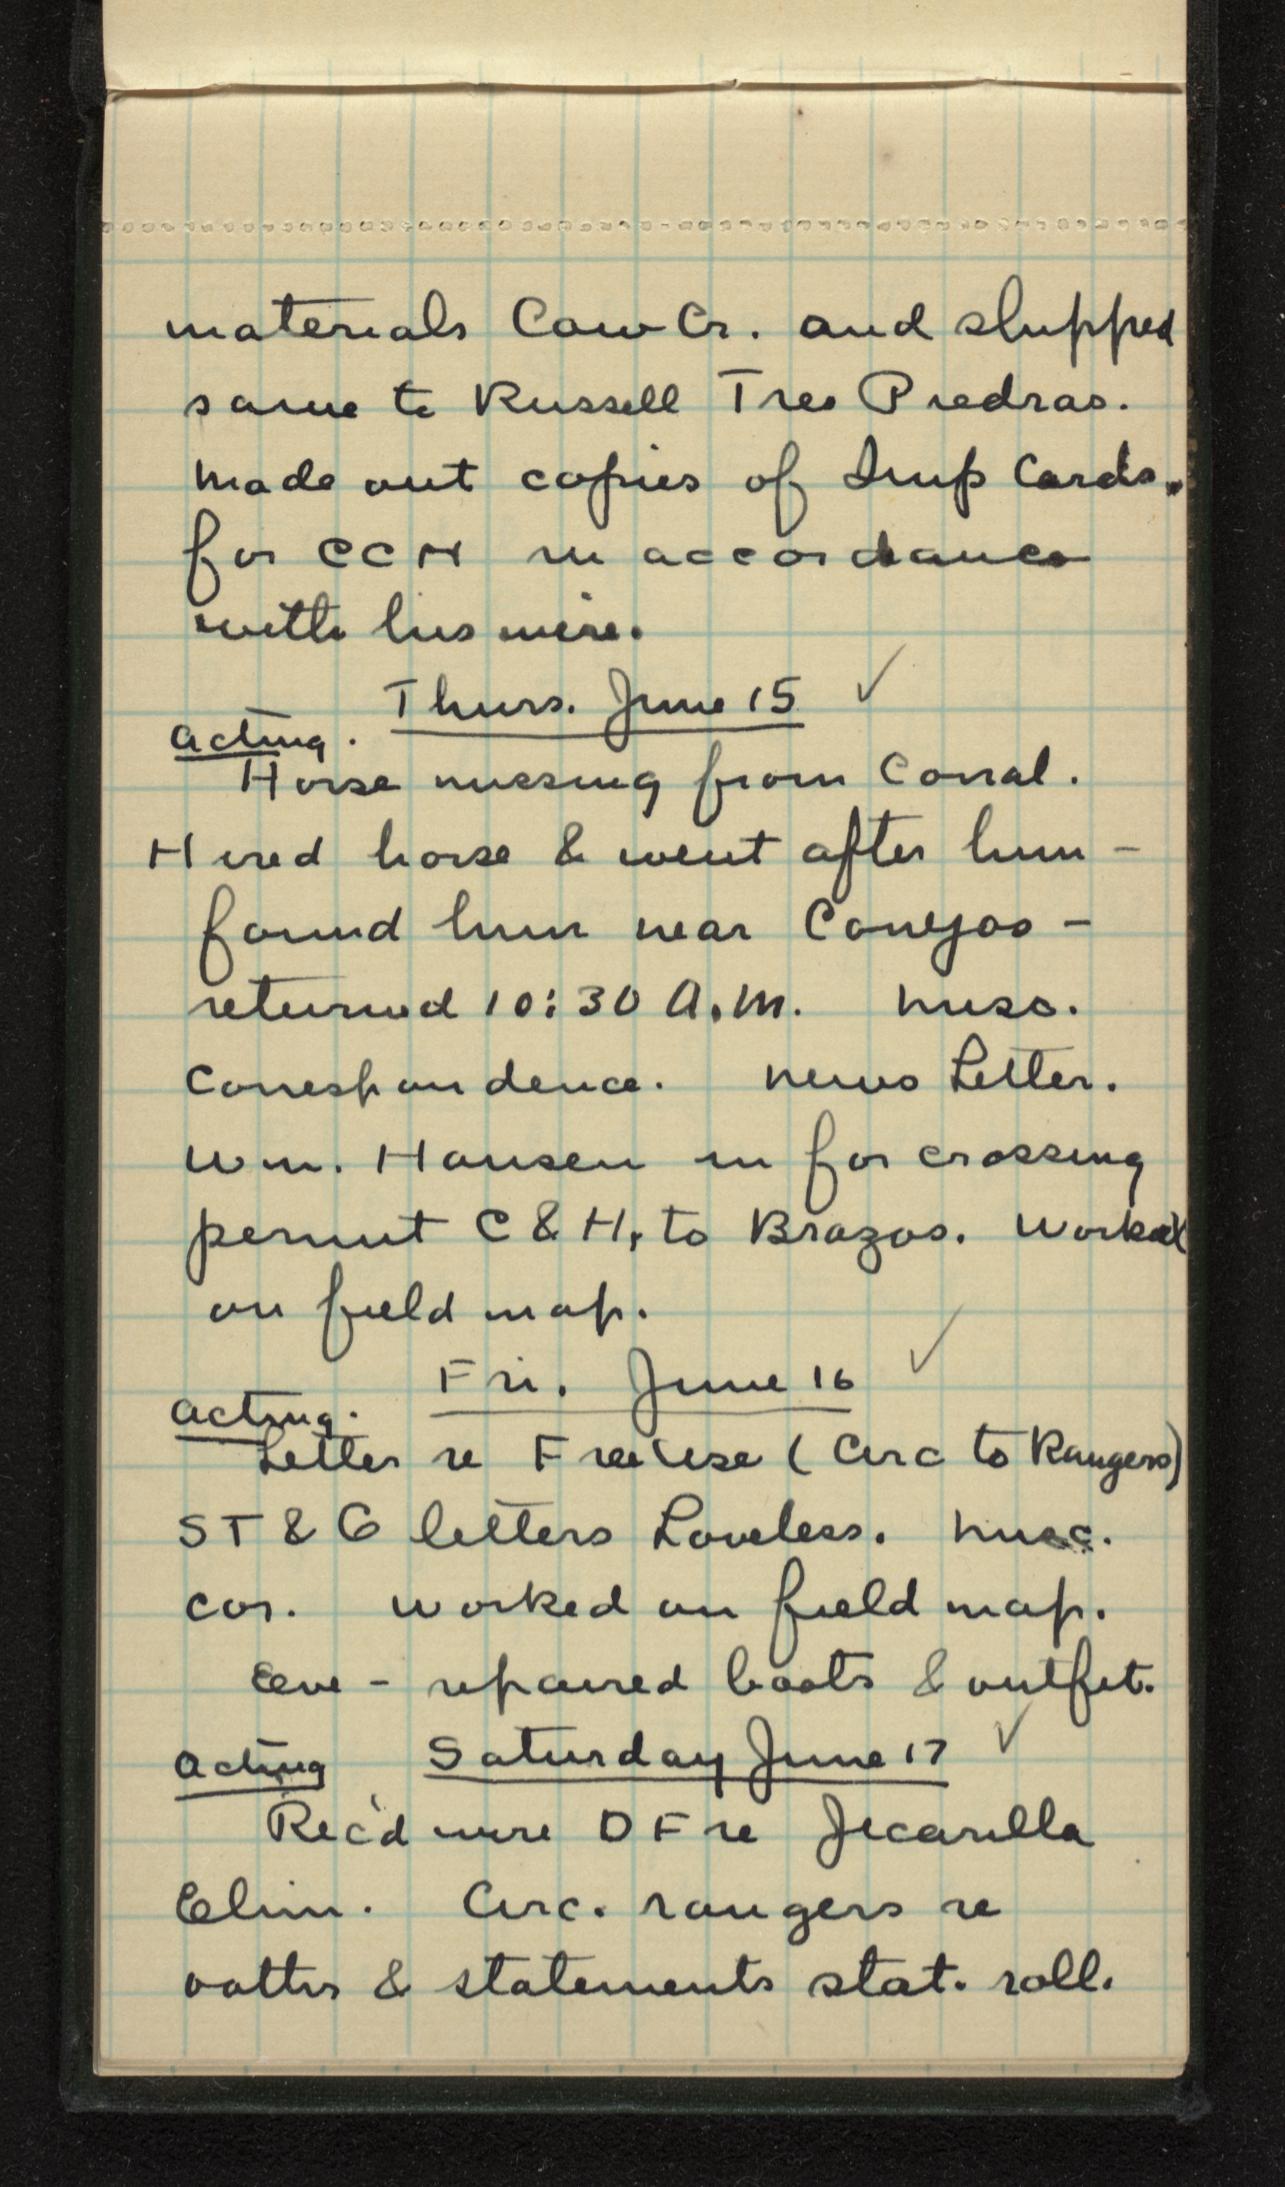 materials Cow Cr. and shipped
same to Russell Tres Piedras.
Made out copies of Imp Cards.
for CCH in accordance
with his wire.
Thurs. June 15 ✓
Acting.
Horse missing from Corral.
Hired horse & went after him –
found him near Conejos –
returned 10:30 A.M. Misc.
Correspondence. News Letter.
Wm. Hansen in for crossing
permit C & H, to Brazos. Worked
on field map.
Fri. June 16 ✓
Acting.
Letter re Free Use (Circ to Rangers)
ST & G letters Loveless. Misc.
cor. Worked on field map.
Eve – repaired boots & outfit.
Acting Saturday June 17 ✓
Rec'd wire DF re Jicarilla
Elim. Circ. rangers re
oaths & statements stat. roll.